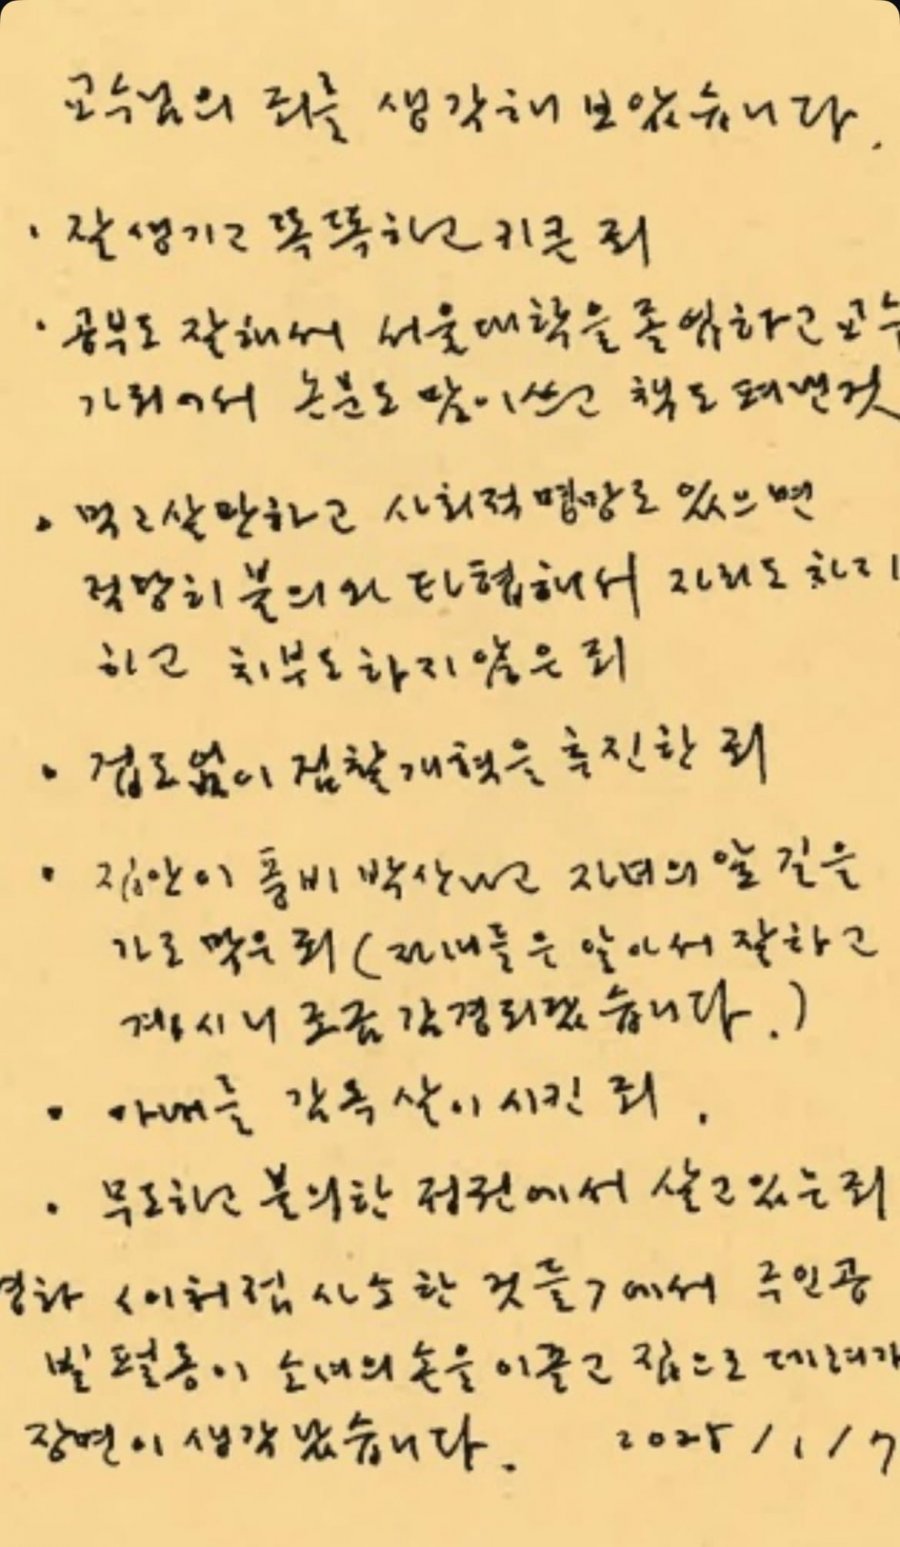 교수님의 죄를 생각해 보았습니다.
· 잘생기고 똑똑하고 키큰 죄
· 공부도 잘해서 서울대학을 졸업하고 교수
가 되어서 논문도 많이 쓰고 책도 펴낸 것
· 먹고 살만하고 사회적 명망도 있으면
적당히 불의와 타협해서 자리도 차지
하고 치부도 하지 않은 죄
· 겁도 없이 검찰개혁을 추진한 죄
· 집안이 풍비박산나고 자녀의 앞길을
가로막은 죄 (자녀들은 알아서 잘하고
계시니 조금 감경되었습니다.)
· 아내를 감옥살이 시킨 죄.
· 무도하고 불의한 정권에서 살고 있는 죄
영화 <이처럼 사소한 것들>에서 주인공
빌 펄롱이 소녀의 손을 이끌고 집으로 데려가
장면이 생각났습니다. 2025/1/7